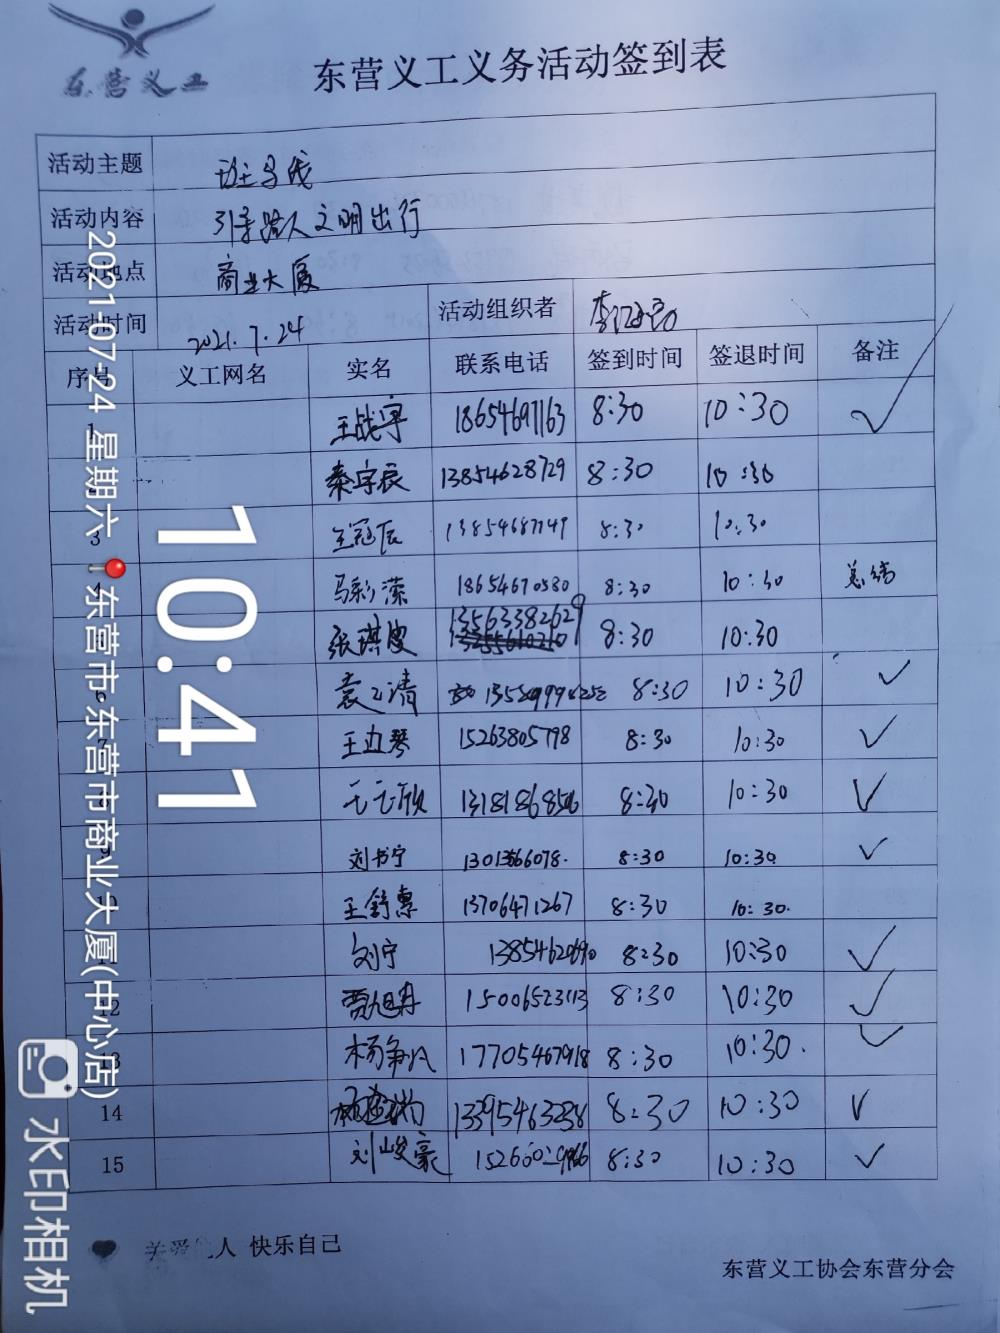 东营义工
东营义工义务活动签到表
活动主题 斑马线
活动内容 引导路人文明出行
活动地点 商业大厦
活动时间 2021.7.24 活动组织者
序号 义工网名 实名 联系电话 签到时间 签退时间 备注
1 王战宇 18654697163 8:30 10:30 ✓
秦宇辰 13854628729 8:30 10:30
3 王冠辰 13854687149 8:30 10:30
4 马彩滢 18654670580 8:30 10:30 总结
13563382629 8:30 10:30
6 8:30 10:30 ✓
7 15263805798 8:30 10:30 ✓
8 8:30 10:30 ✓
9 刘书宁 8:30 10:30 ✓
王舒惠 13706471267 8:30 10:30.
刘宁 8:30 10:30 ✓
12 15006523113 8:30 10:30 ✓
13 17705467918 8:30 10:30. ✓
14 13395463238 8:30 10:30 ✓
15 刘峻豪 8:30 10:30 ✓
关爱他人 快乐自己
东营义工协会东营分会
10:41
2021-07-24 星期六 东营市东营市商业大厦(中心店)
水印相机